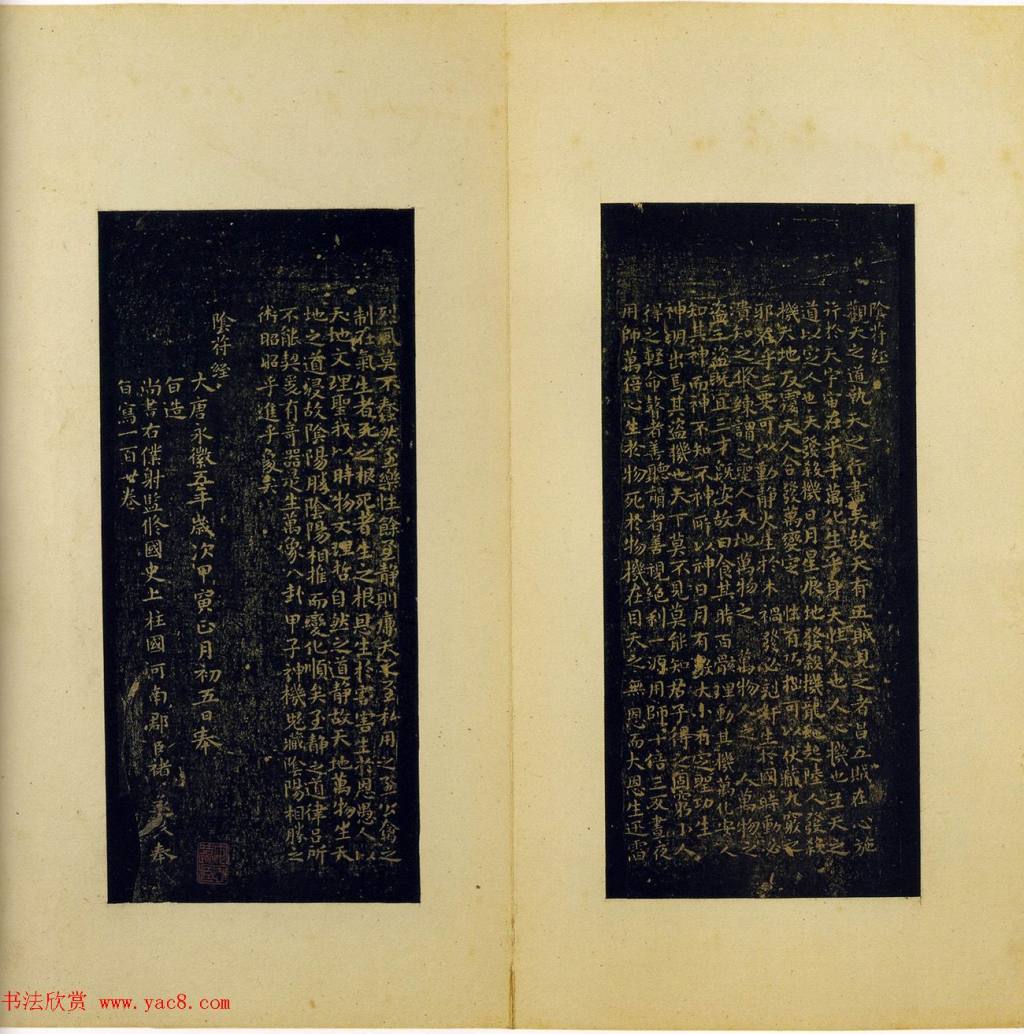 陰符經
觀天之道執天之行盡矣故天有五賊見之者昌五賊在心施
行於天宇宙在乎手萬化生乎身天性人也人心機也立天之
道以定人也天發殺機日月星辰地發殺機龍蛇起陸人發殺
機天地反覆天人合發萬變定基性有巧拙可以伏藏九竅之
邪在乎三要可以動靜火生於木禍發必剋奸生於國時動必
潰知之脩練謂之聖人天地萬物之盜萬物人之盜人萬物之
盜三盜既宜三才既安故曰食其時百骸理動其機萬化安人
知其神而神不知不神所以神日月有數大小有定聖功生
神明出焉其盜機也天下莫不見莫能知君子得之固窮小人
得之輕命瞽者善聽聾者善視絕利一源用師十倍三反晝夜
用師萬倍心生於物死於物機在目天之無恩而大恩生迅雷
烈風莫不蠢然至樂性餘至靜則廉天之至私用之至公禽之
制在氣生者死之根死者生之根恩生於害害生於恩愚人以
天地文理聖我以時物文理哲自然之道靜故天地萬物生天
地之道寖故陰陽勝陰陽相推而變化順矣至靜之道律呂所
不能契爰有奇器是生萬象八卦甲子神機鬼藏陰陽相勝之
術昭昭乎進乎象矣
陰符經
大唐永徽五年歲次甲寅正月初五日奉
旨造
尚書右僕射監脩國史上柱國河南郡臣褚遂良奉
旨寫一百廿卷
书法欣赏 www.yac8.com